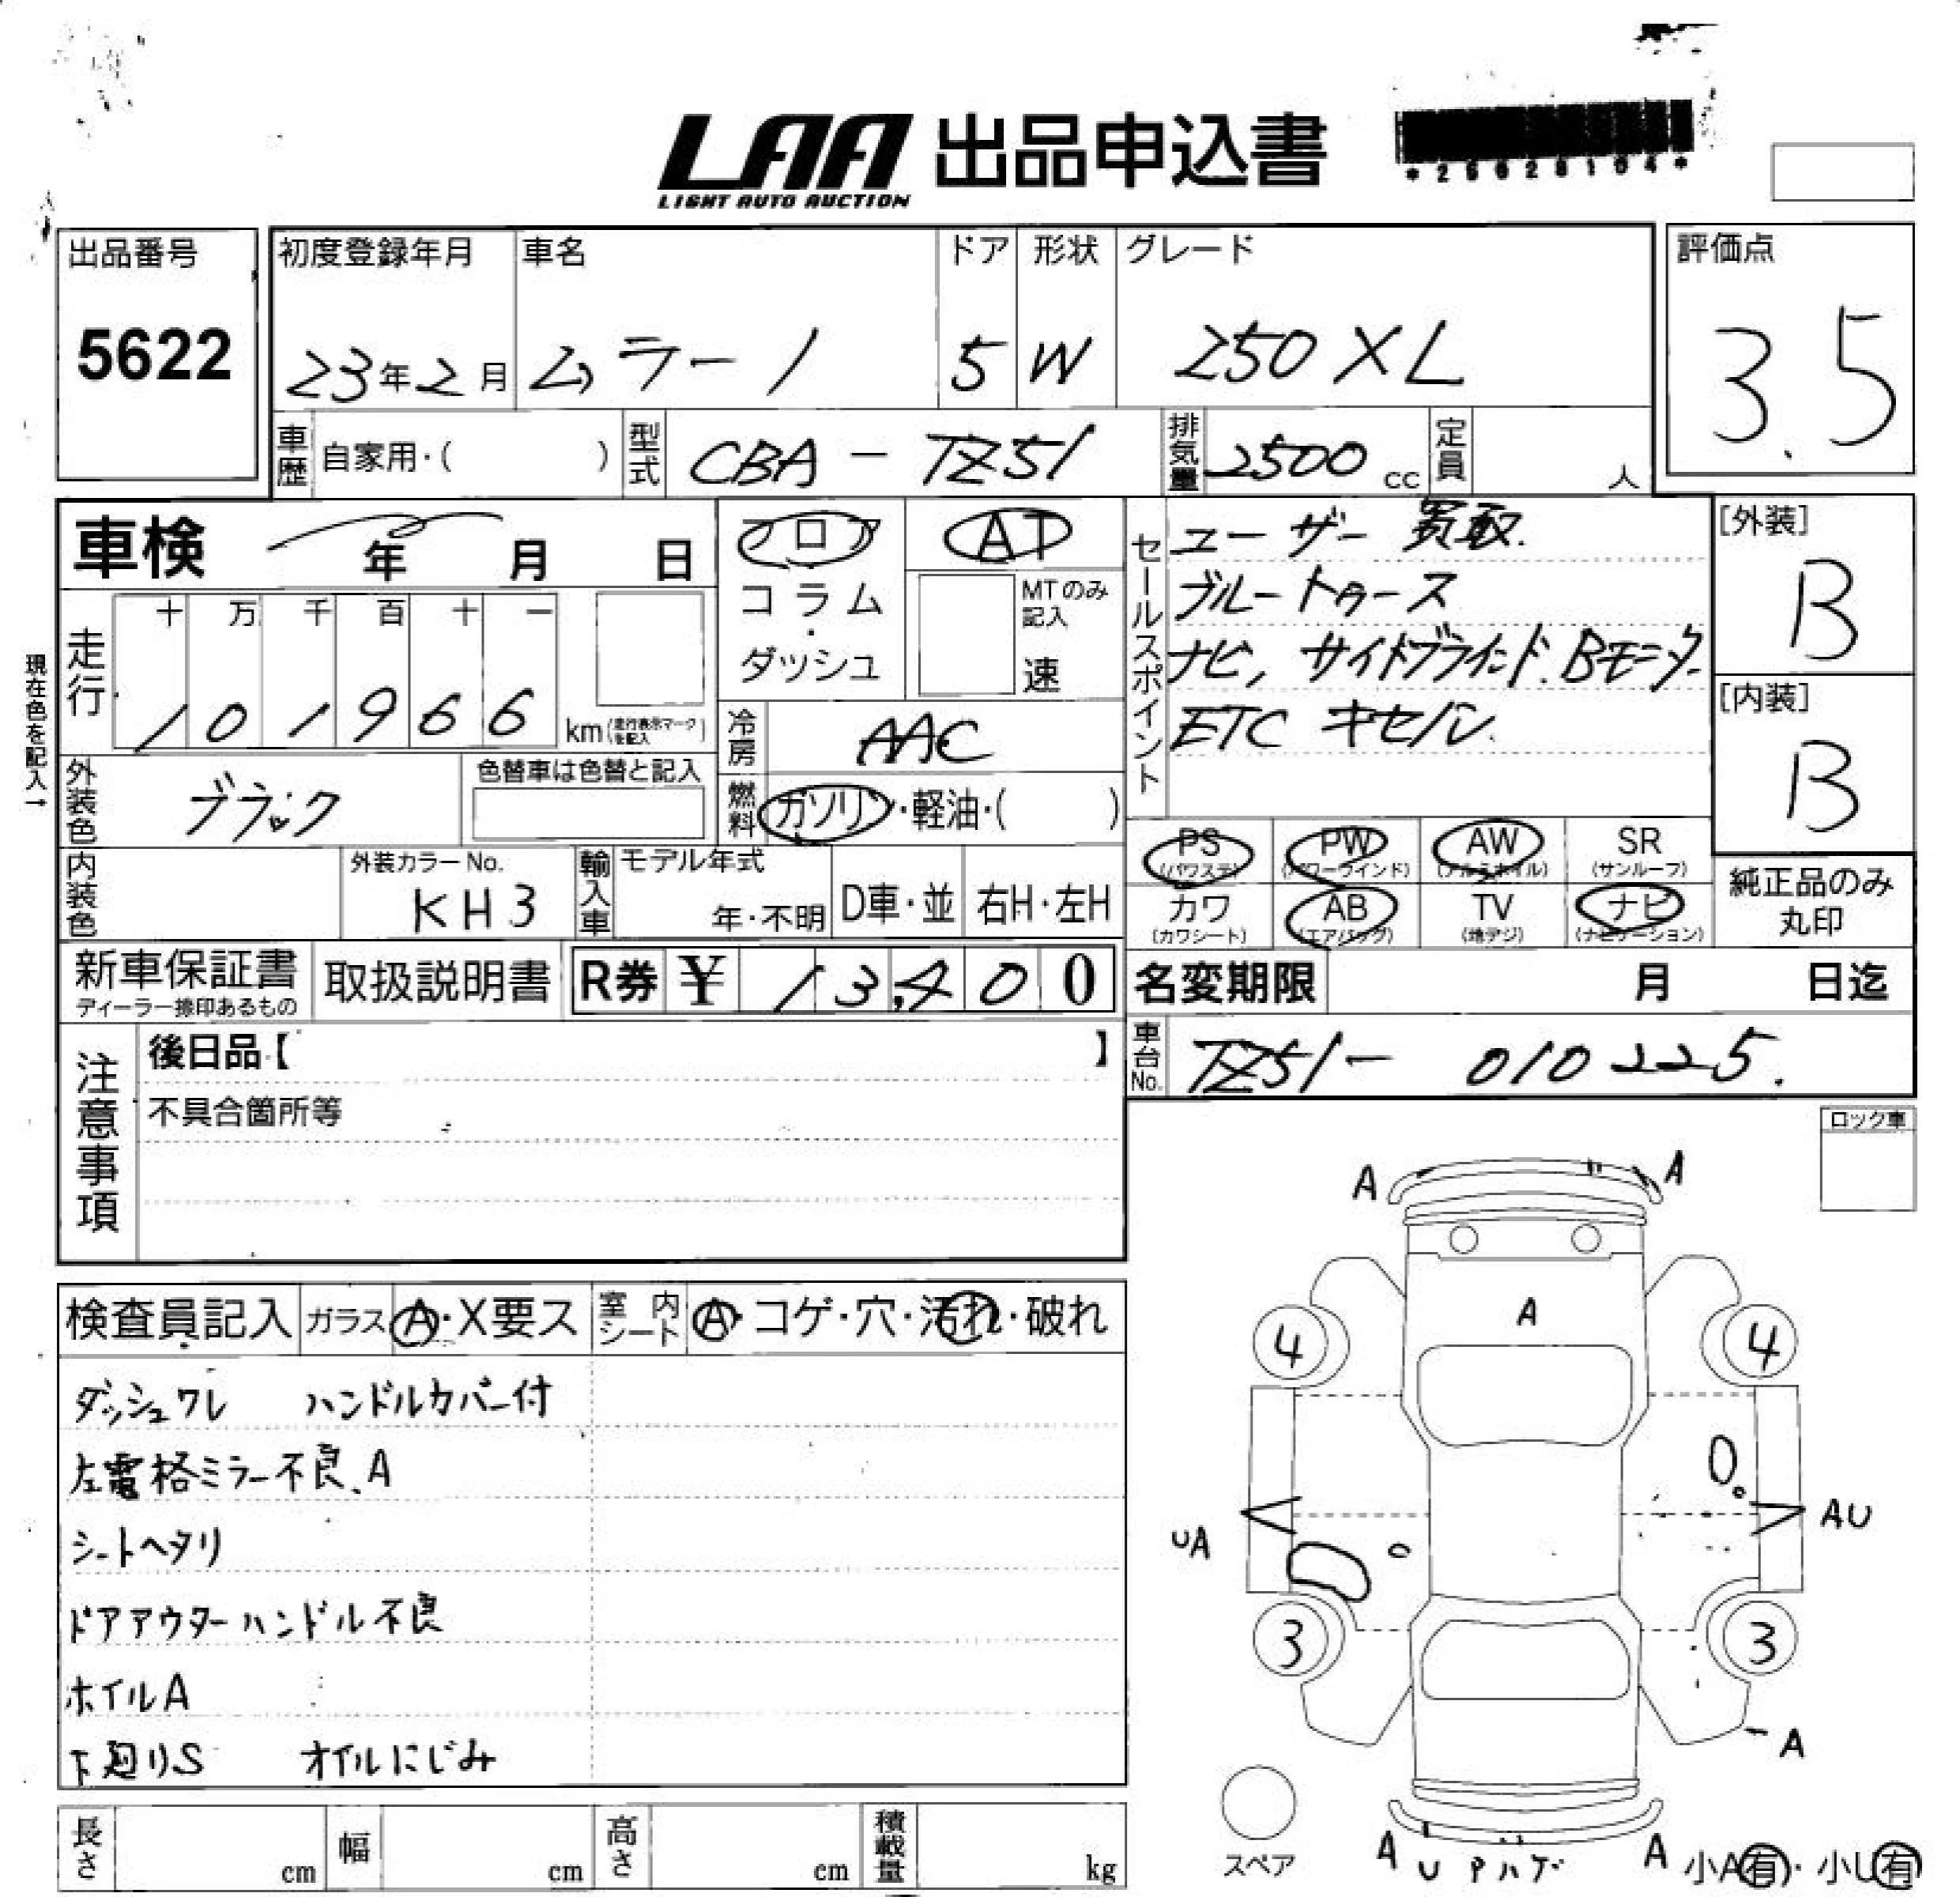 LAA 出品申込書
LIGHT AUTO AUCTION
出品番号
5622
初度登録年月
23年2月
車名
ムラーノ
ドア
5
形状
W
グレード
250XL
評価点
3.5
車歴 自家用・( )
型式 CBA-TZ51
排気量 2500 cc
定員 人
車検 年 月 日
フロア
コラム
・
ダッシュ
AT
MTのみ
記入
速
セールスポイント
ユーザー買取.
ブルートゥース
ナビ, サイドブラインド.Bモニタ-
ETC キセノン.
[外装]
B
[内装]
B
現在色を記入→
走行
十 万 千 百 十 一
1 0 1 9 6 6 km(走行表示マークを記入)
冷房 AAC
外装色 ブラック
色替車は色替と記入
燃料 ガソリン・軽油・( )
内装色
外装カラーNo.
KH3
輸入車
モデル年式
年・不明
D車・並
右H・左H
PS (パワステ)
PW (パワーウインド)
AW (アルミホイル)
SR (サンルーフ)
カワ (カワシート)
AB (エアバッグ)
TV (地デジ)
ナビ (ナビゲーション)
純正品のみ
丸印
新車保証書
ディーラー捺印あるもの
取扱説明書
R券 ¥ 13,400
名変期限 月 日迄
車台No. TZ51- 010225.
注意事項
後日品【 】
不具合箇所等
ロック車
検査員記入
ガラス A・X要ス
室内シート A・コゲ・穴・汚れ・破れ
ダッシュワレ ハンドルカバー付
左電格ミラー不良、A
シートヘタリ
ドアアウターハンドル不良
ホイルA
下廻りS オイルにじみ
A A
A
4 4
UA AU
3 3
A
スペア
A U Pハゲ A
小A有・小U有
長さ cm
幅 cm
高さ cm
積載量 kg